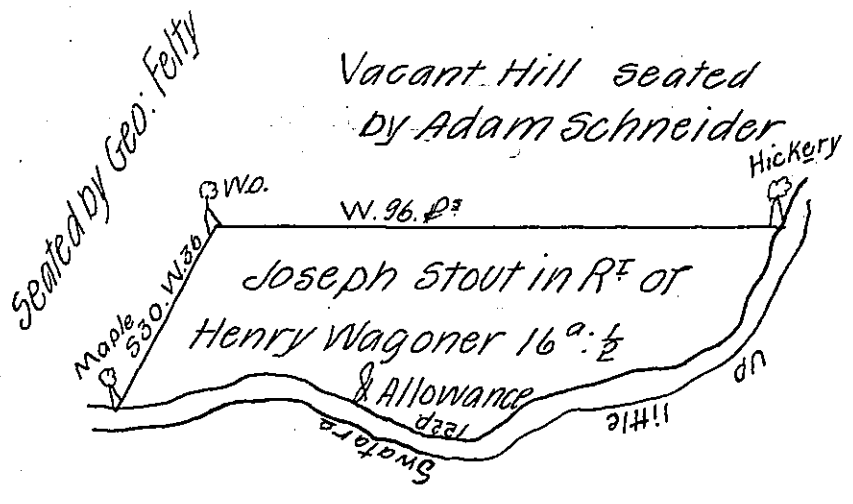 Seated by Geo: Felty
Vacant Hill seated
by Adam Schneider
Hickery
W.O.
W. 96. Ps
Maple
S30. W. 36
Joseph Stout in Rt of
Henry Wagoner 16a: 1/2
& Allowance
122p
Up
little
Swatara